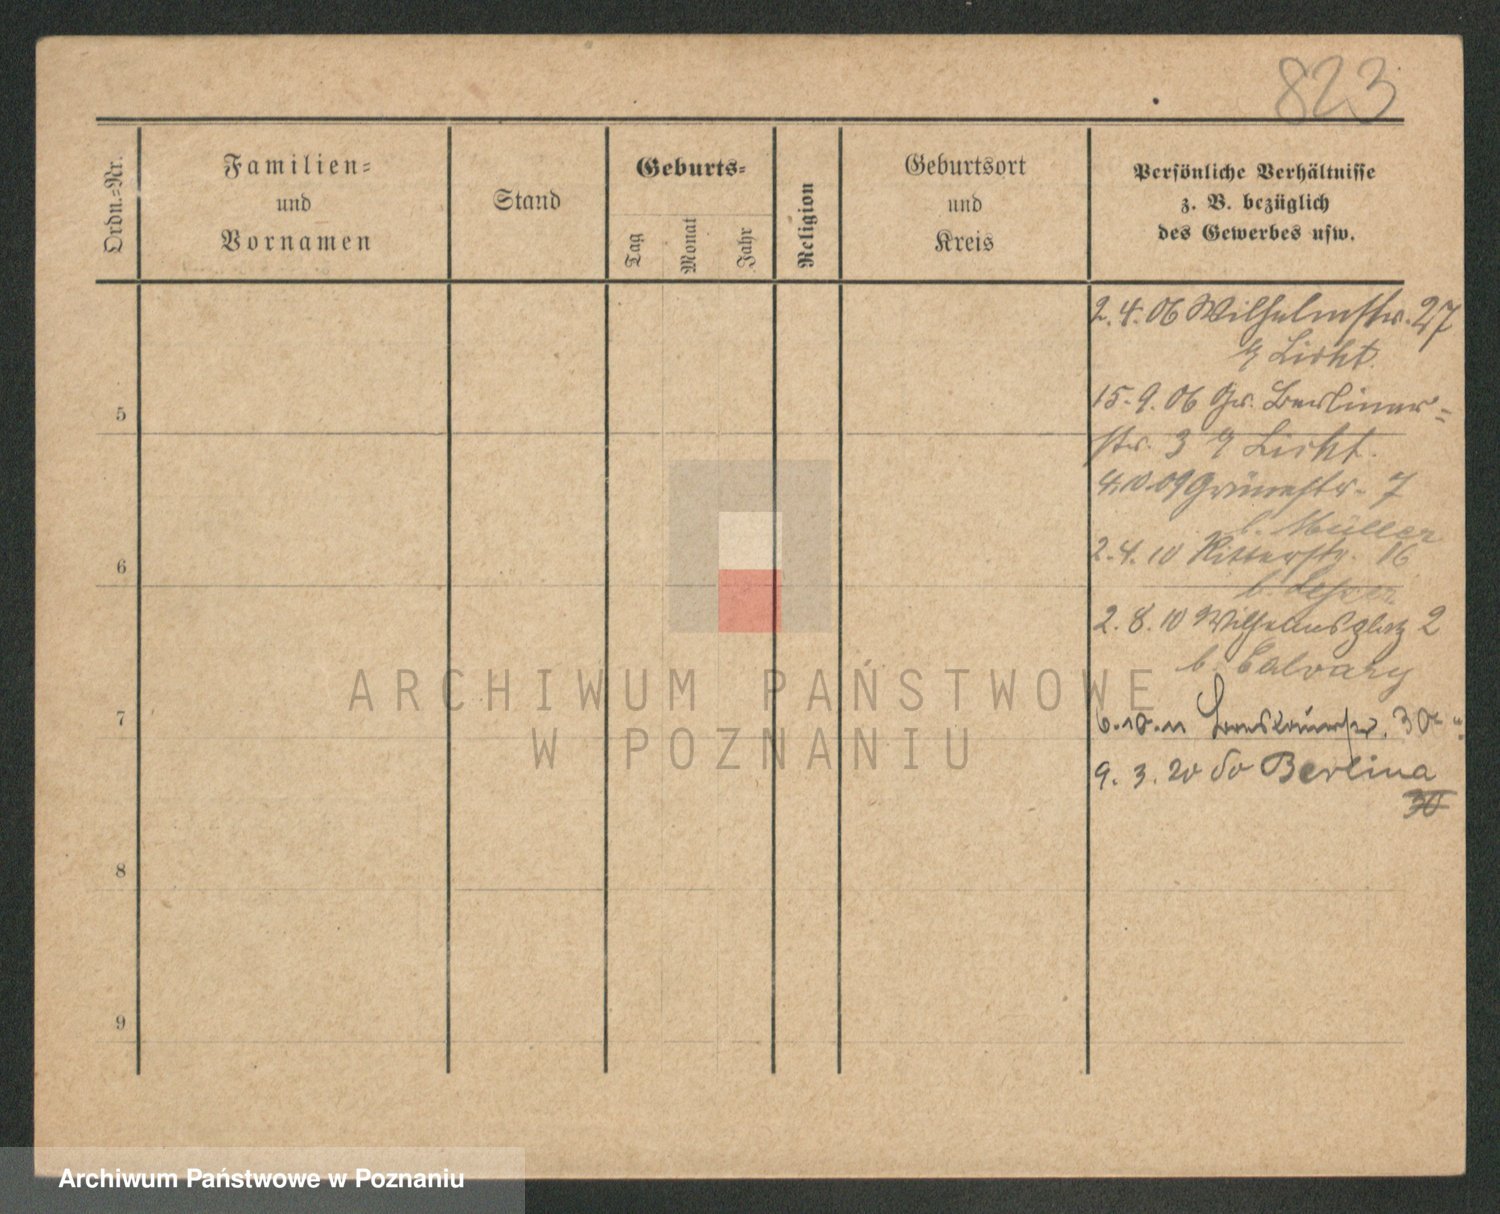 823
Ordn.-Nr.
Familien-
und
Vornamen
Stand
Geburts-
Tag
Monat
Jahr
Religion
Geburtsort
und
Kreis
Persönliche Verhältnisse
z. B. bezüglich
des Gewerbes usw.
2.4.06 Wilhelmstr. 27
Licht.
5
15.9.06 Gr. Berliner-
str. 3 Licht.
4.10.09 Grünestr. 7
b. Müller
6
2.4.10 Ritterstr. 16
b.
2.8.10 Wilhelmsplatz 2
b. Calvary
7
6.10.11 30
9.3.20 do Berlina
30
8
9
ARCHIWUM PAŃSTWOWE
W POZNANIU
Archiwum Państwowe w Poznaniu